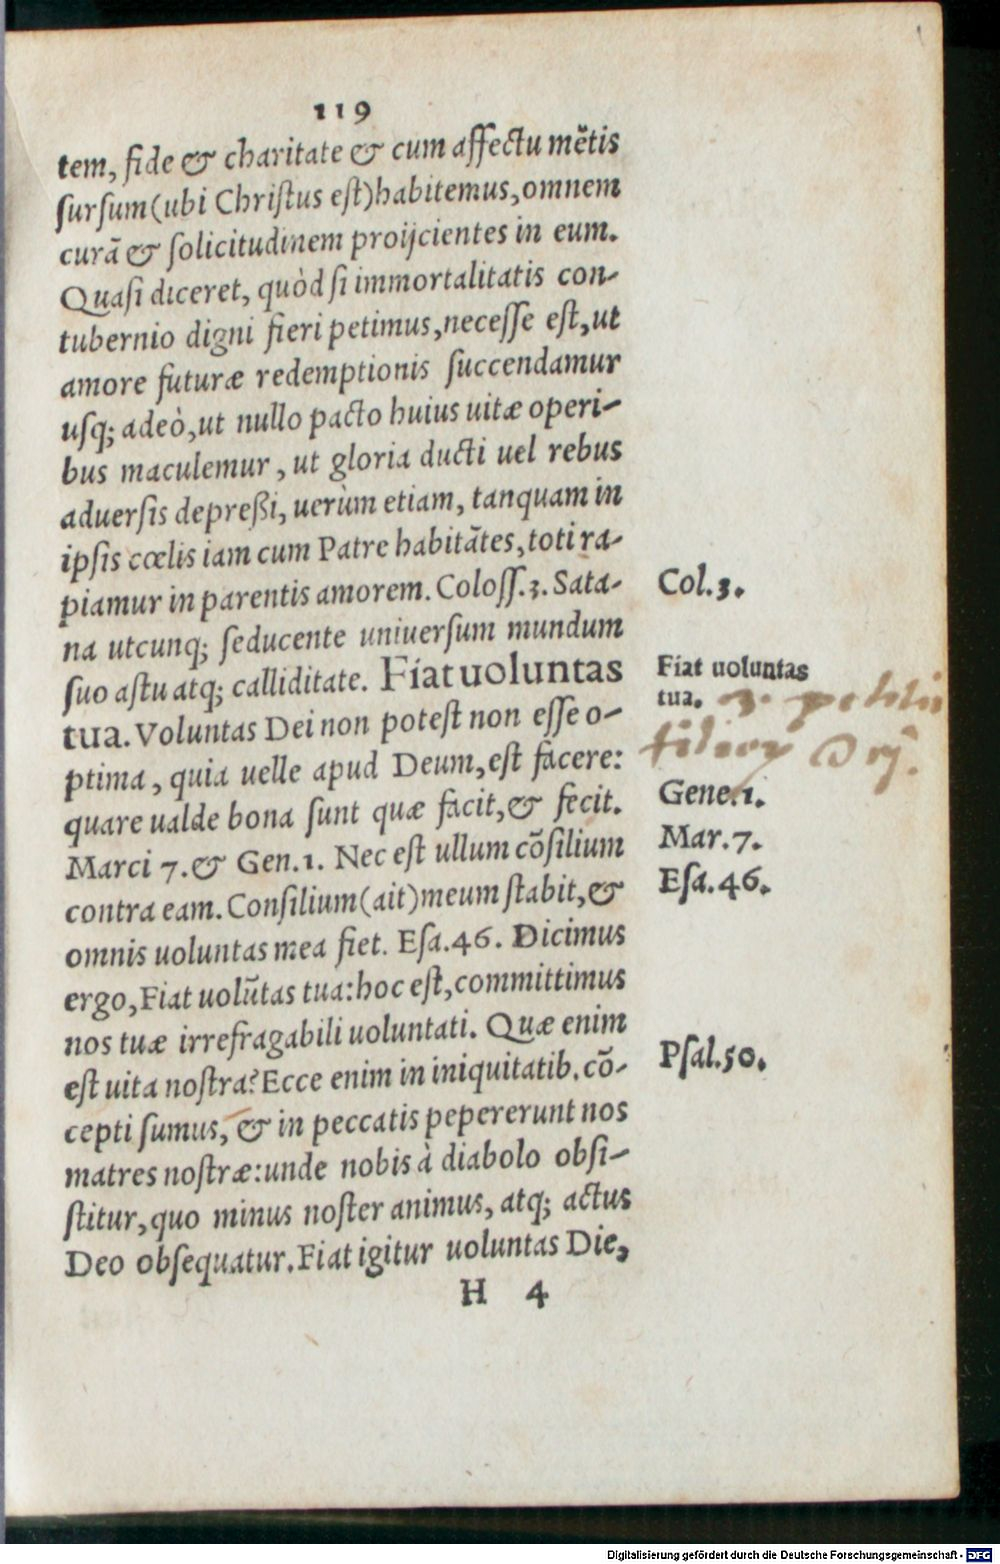 119
tem, fide & charitate & cum affectu mẽtis
ſurſum(ubi Chriſtus eſt)habitemus,omnem
curã & ſolicitudinem proijcientes in eum.
Quaſi diceret, quòd ſi immortalitatis con-
tubernio digni fieri petimus,neceſſe eſt,ut
amore futuræ redemptionis ſuccendamur
uſq; adeò,ut nullo pacto huius uitæ operi-
bus maculemur, ut gloria ducti uel rebus
aduerſis depreßi, uerùm etiam, tanquam in
ipſis cœlis iam cum Patre habitãtes,toti ra-
piamur in parentis amorem. Coloſſ.3. Sata-
na utcunq; ſeducente uniuerſum mundum
ſuo aſtu atq; calliditate. Fiat uoluntas
tua. Voluntas Dei non poteſt non eſſe o-
ptima, quia uelle apud Deum,eſt facere:
quare ualde bona ſunt quæ facit,& fecit.
Marci 7.& Gen.1. Nec eſt ullum cõſilium
contra eam. Conſilium(ait)meum ſtabit,&
omnis uoluntas mea fiet. Eſa.46. Dicimus
ergo,Fiat uolũtas tua:hoc eſt,committimus
nos tuæ irrefragabili uoluntati. Quæ enim
eſt uita noſtra? Ecce enim in iniquitatib.cõ-
cepti ſumus, & in peccatis pepererunt nos
matres noſtræ:unde nobis à diabolo obſi-
ſtitur,quo minus noſter animus, atq; actus
Deo obſequatur.Fiat igitur uoluntas Die,
H 4
Col.3.
Fiat uoluntas
tua. 3.
Gene.1.
Mar.7.
Eſa.46.
Pſal.50.
Digitalisierung gefördert durch die Deutsche Forschungsgemeinschaft - DFG